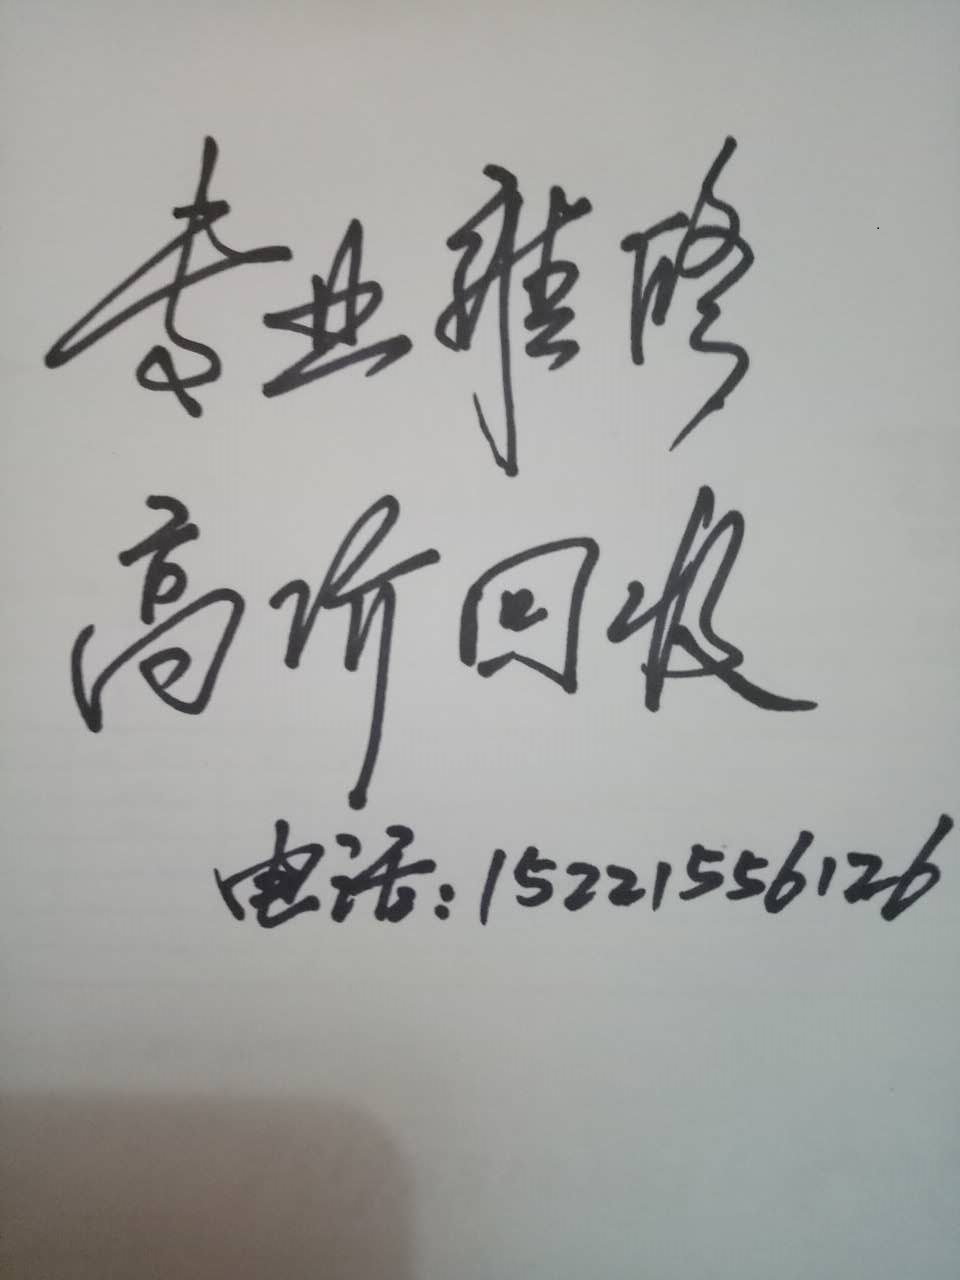 专业维修
高价回收
电话:15221556126